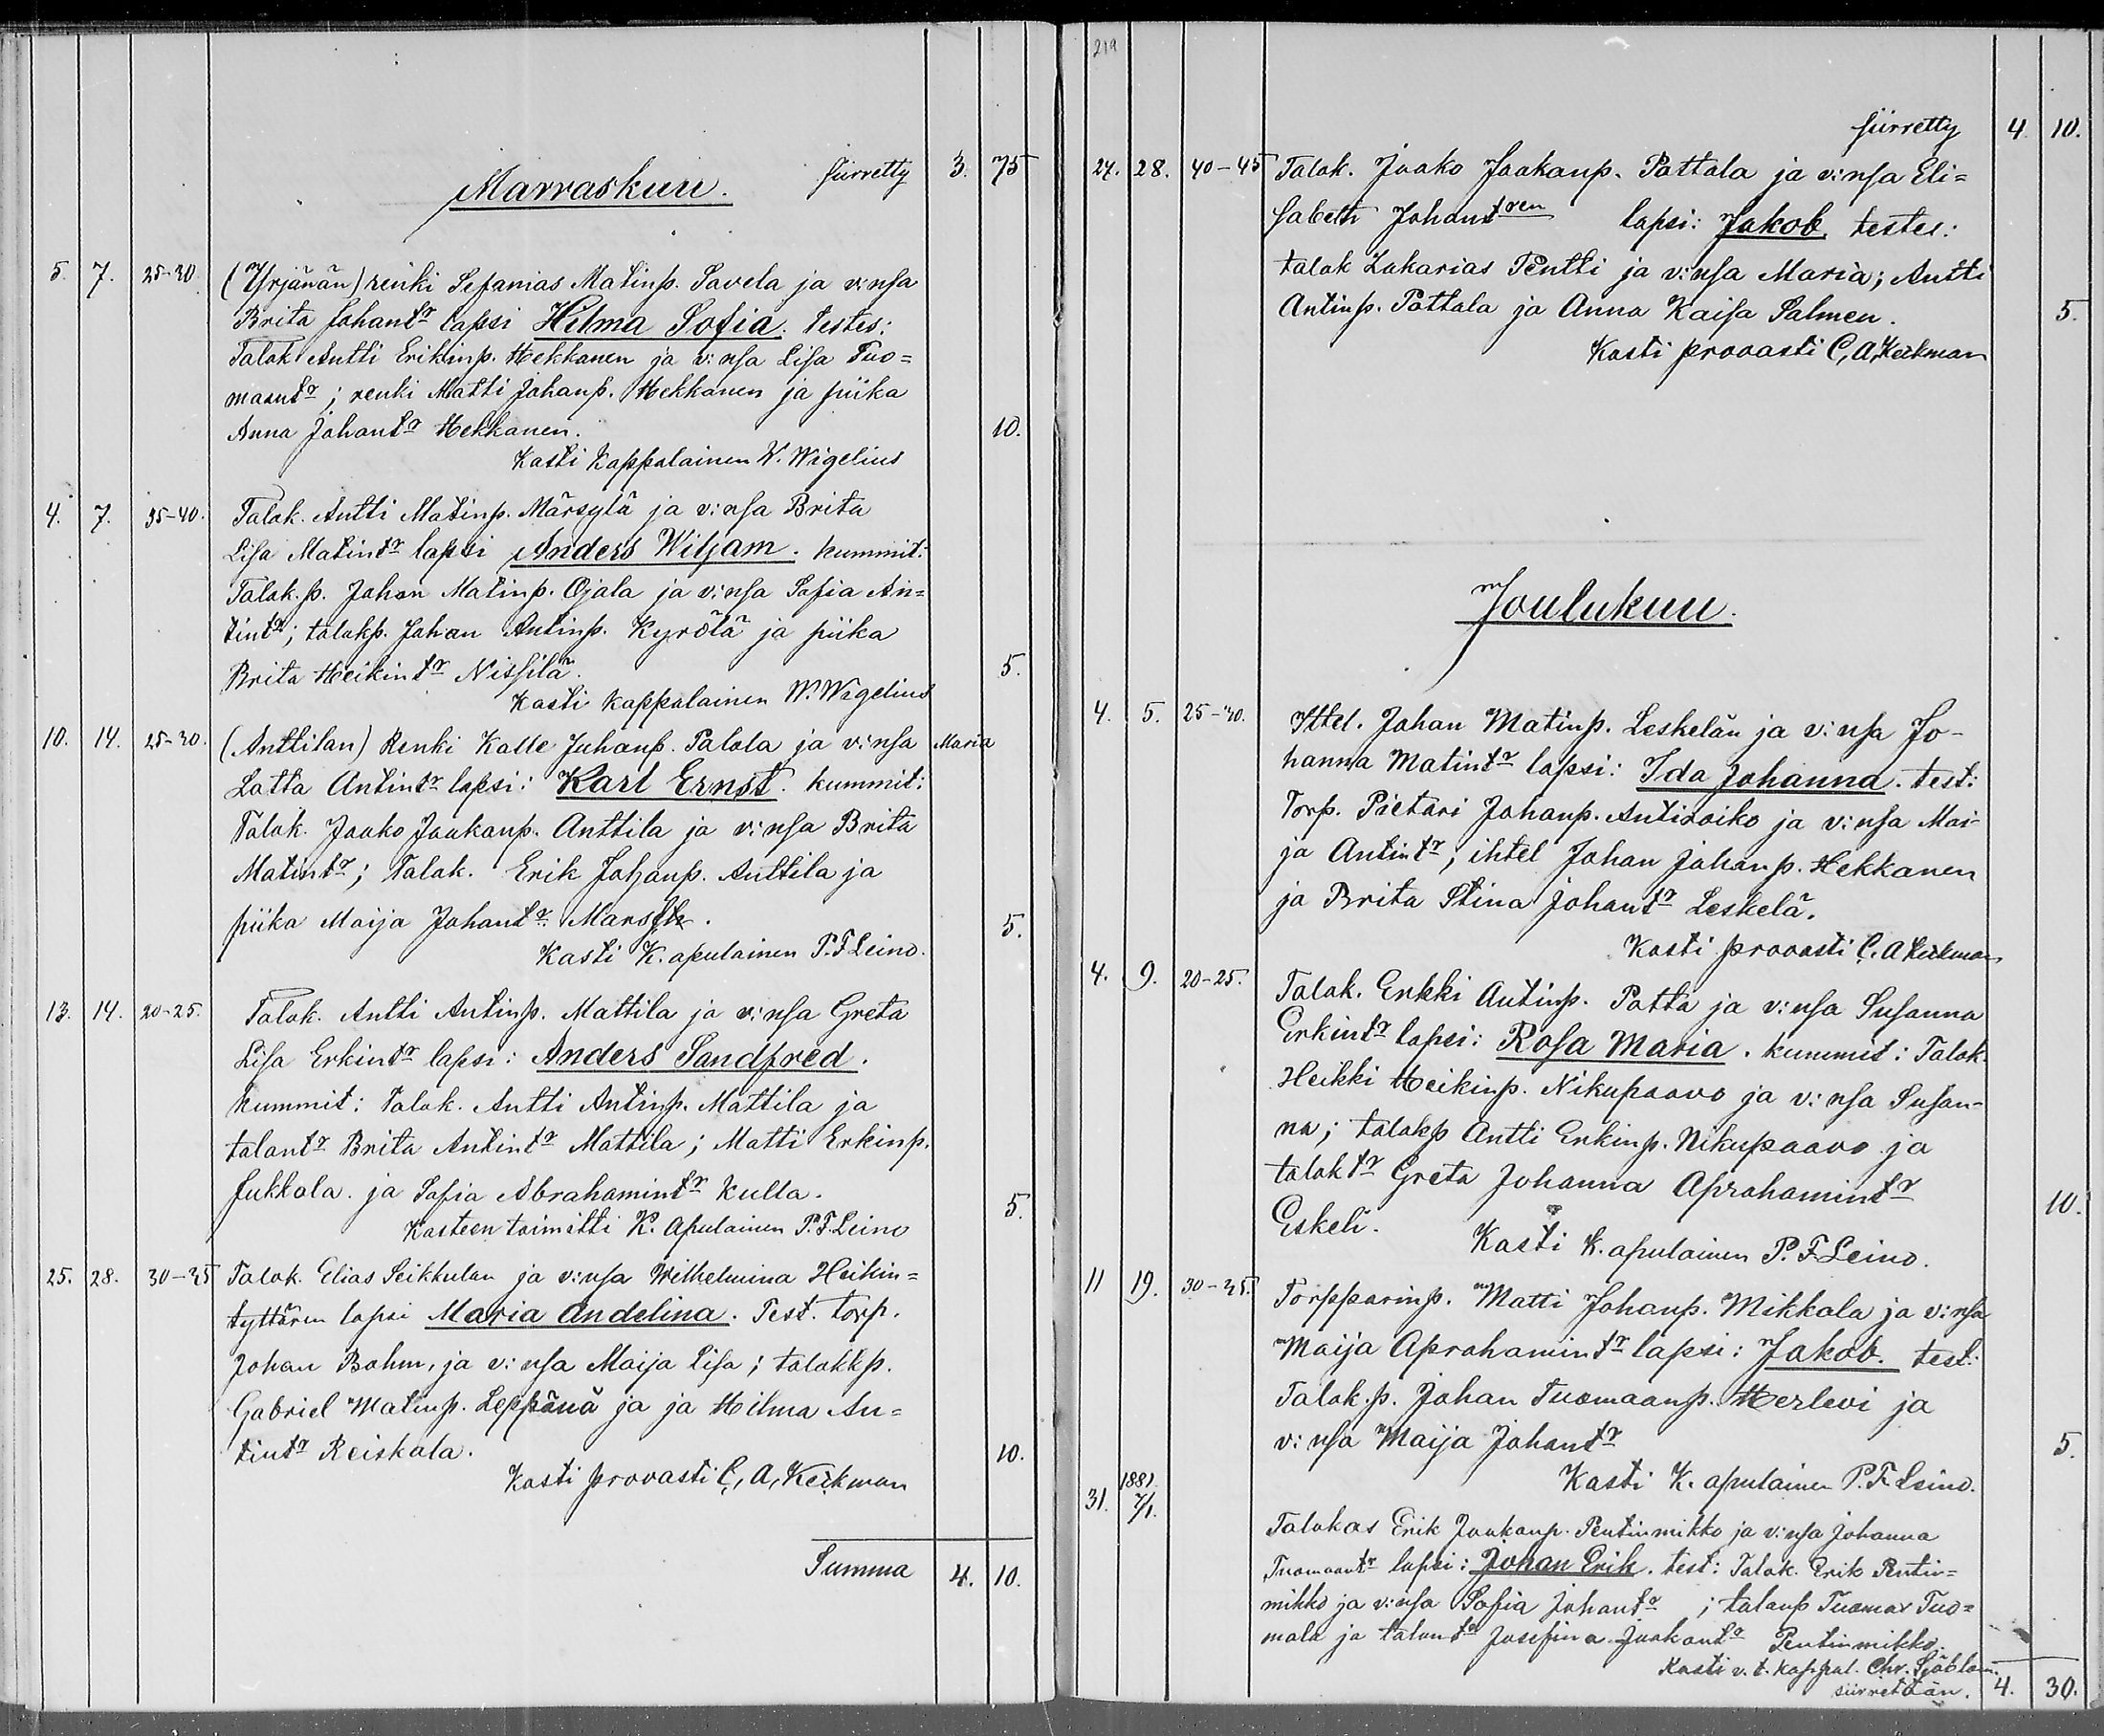 Marraskuu. siirretty 3. 75
5. 7. 25-30. (Yrjänän) renki Sefanias Matinp. Savela ja v:nsa
Brita Johantr lapsi Hilma Sofia. testes:
Talok Antti Erikinp. Hekkanen ja v:nsa Lisa Tuo=
maantr; renki Matti Johanp. Hekkanen ja piika
Anna Johantr Hekkanen. 10.
Kasti Kappalainen W. Wigelius
4. 7. 35-40. Talok. Antti Matinp. Märsylä ja v:nsa Brita
Lisa Matintr lapsi Anders Wiljam. kummit:
Talok.p. Johan Matinp. Ojala ja v:nsa Sofia An=
tintr; talokp. Johan Antinp. Kyrölä ja piika
Brita Heikintr Nissilä. 5.
Kasti kappalainen W. Wigelius
10. 14. 25-30. (Anttilan) Renki Kalle Juhanp. Palola ja v:nsa Maria
Lotta Antintr lapsi: Karl Ernst. kummit:
Talok. Jaako Jaakanp. Anttila ja v:nsa Brita
Matintr; Talok. Erik Johanp. Anttila ja
piika Maija Johantr 5.
Kasti K. apulainen P. F Leino.
13. 14. 20-25. Talok. Antti Antinp. Mattila ja v:nsa Greta
Lisa Erkintr lapsi: Anders Sandfred.
Kummit: Talok. Antti Antinp. Mattila ja
talontr Brita Antintr Mattila; Matti Erkinp.
Jukkola. ja Sofia Abrahamintr Kulla. 5.
Kasteen toimitti K. Apulainen P. F. Leino
25. 28. 30-35 Talok. Elias Seikkulan ja v:nsa Wilhelmina Heikin=
tyttären lapsi Maria Andelina. Test. torp.
Johan Bohm, ja v:nsa Maija Lisa; talokkp.
Gabriel Matinp. Leppänä ja ja Hilma An=
tintr Reiskala. 10.
Kasti provasti C, A, Keckman
Summa 4. 10.
219
siirretty 4 10.
27. 28. 40-45 Talok. Jaako Jaakanp. Pottala ja v:nsa Eli=
sabeth Johantren lapsi: Jakob testes:
talok Zakarias Pentti ja v:nsa Maria; Antti
Antinp. Pottala ja Anna Kaisa Salmen. 5.
Kasti provasti C, A, Keckman
Joulukuu.
4. 5. 25-30. Ittel. Johan Matinp. Leskelän ja v:nsa Jo-
hanna Matintr lapsi: Ida Johanna. test:
Torp. Pietari Johanp. Antiroiko ja v:nsa Mai-
ja Antintr; ihtel Johan Johanp. Hekkanen
ja Brita Stina Johantr Leskelä.
Kasti provasti C. A Keckman
4. 9. 20-25. Talok. Erkki Antinp. Potta ja v:nsa Susanna
Erkintr lapsi: Rosa Maria. kummit: Talok.
Heikki Heikinp. Nikupaavo ja v:nsa Susan-
na; talokp Antti Erkinp. Nikupaavo ja
taloktr Greta Johanna Aprahamintr 10.
Eskeli. Kasti K. apulainen P. F Leino.
11 19. 30-35. Torpparinp. Matti Johanp. Mikkola ja v:nsa
Maija Aprahamintr lapsi: Jakob. test:
Talok.p. Johan Tuomaanp. Herlevi ja
v:nsa Maija Johantr 5.
Kasti K. apulainen P. F Leino.
31. 1881 7/1. Talokas Erik Jaakanp. Pentinmikko ja v:nsa Johanna
Tuomaantr lapsi: Johan Erik. test: Talok. Erik Pentin=
mikko ja v:nsa Sofia Johantr ; talanp Tuomas Tuo=
mala ja talontr Josefina Jaakantr Pentinmikko.
Kasti v. t. kappal. Chr. Sjöblom.
siirretään. 4. 30.